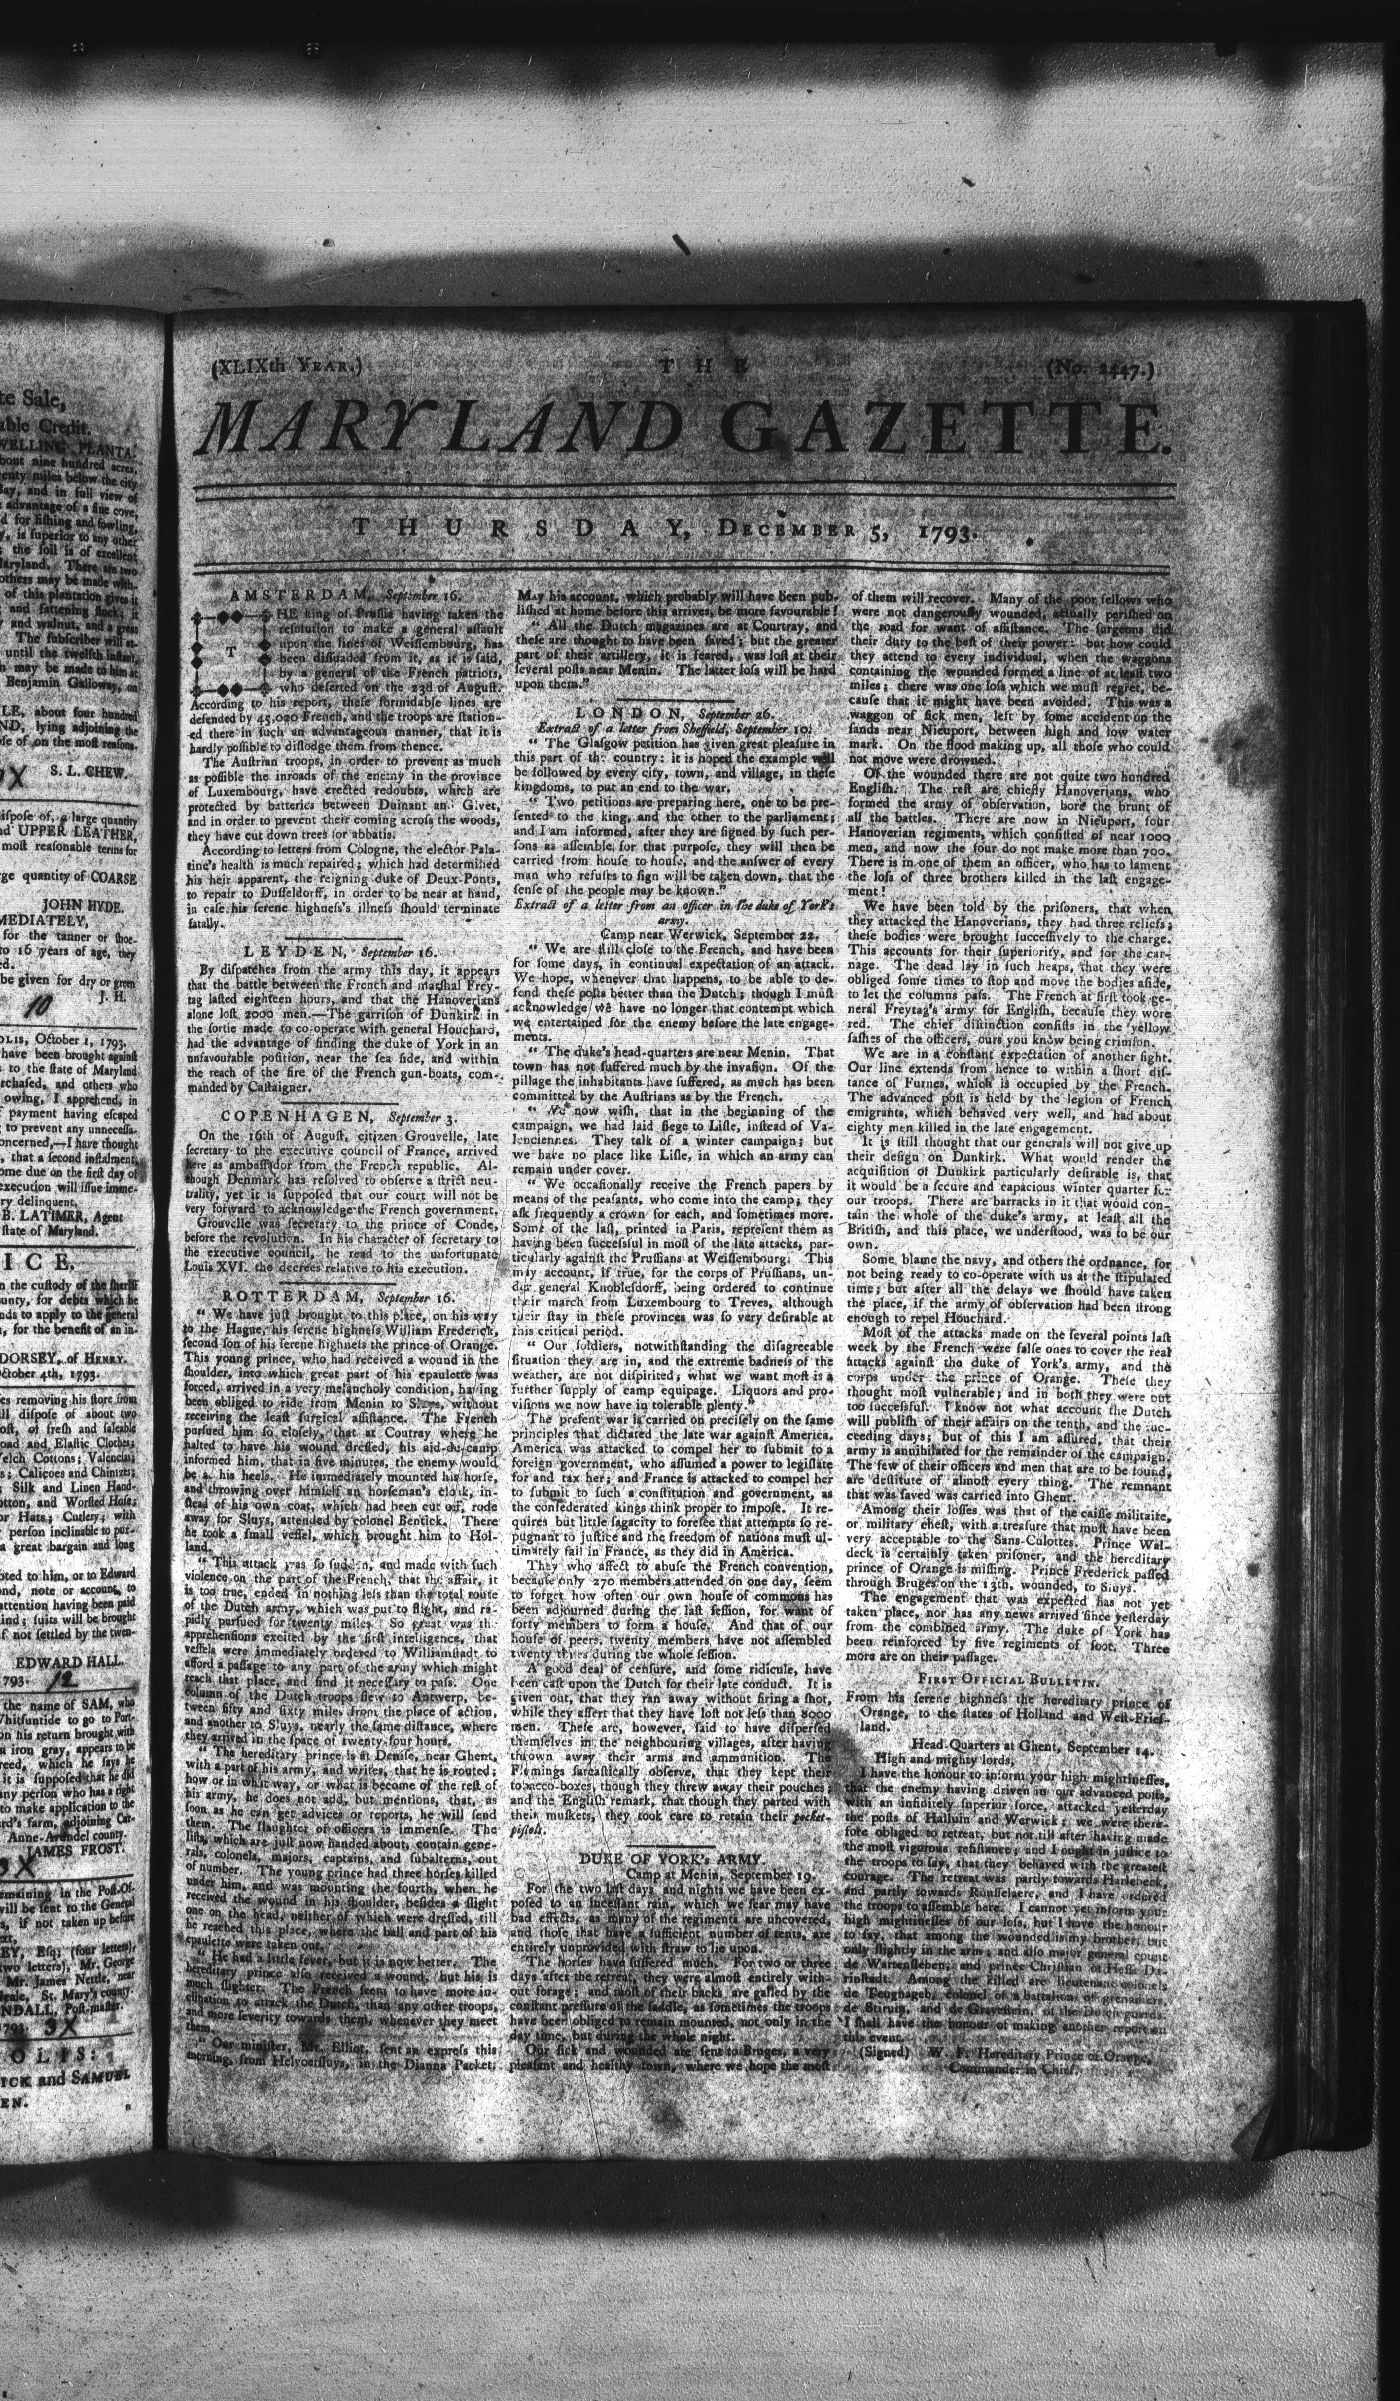 te Sale,
able Credit.
WELLING PLANTA-
bout nine hundred acres,
enty miles below the city
Bay, and in full view of
advantage of a fine cove,
d for fishing and fowling,
y, is superior to any other
the soil is of excellent
aryland. There are two
others may be made with-
of this plantation gives it
and fattening stock; it
y and walnut, and a great
The subscriber will at-
until the twelfth instant,
h may be made to him at
Benjamin Galloway, on
LE, about four hundred
ND, lying adjoining the
ose of on the most reason-
S. L. CHEW.
X
ispose of, a large quantity
nd UPPER LEATHER,
most reasonable terms for
ge quantity of COARSE
JOHN HYDE.
MEDIATELY,
for the tanner or shoe-
to 16 years of age, they
ed.
be given for dry or green
J. H.
10
OLIS, October 1, 1793.
have been brought against
s to the state of Maryland
rchased, and others who
owing, I apprehend, in
f payment having escaped
to prevent any unnecessa-
oncerned,—I have thought
, that a second instalment,
ome due on the first day of
execution will issue imme-
ry delinquent.
B. LATIMER, Agent
state of Maryland.
ICE.
n the custody of the sheriff
unty, for debts which he
nds to apply to the general
, for the benefit of an in-
DORSEY, of HENRY.
October 4th, 1793.
es removing his store from
ll dispose of about two
ost, of fresh and saleable
oad and Elastic Clothes;
elch Cottons; Valencias;
s; Calicoes and Chintzes;
Silk and Linen Hand-
otton, and Worsted Hose;
or Hats; Cutlery; with
person inclinable to pur-
a great bargain and long
bted to him, or to Edward
ond, note or account, to
attention having been paid
ind; suits will be brought
if not settled by the twen-
EDWARD HALL.
793. 12
the name of SAM, who
Whitsuntide to go to Port-
on his return brought with
n iron gray, appears to be
reed, which he says he
it is supposed that he did
any person who has a right
to make application to the
rd's farm, adjoining Car-
Anne-Arundel county.
JAMES FROST.
X
emaining in the Post-Of-
will be sent to the General
s, if not taken up before
ext,
EY, Esq; (four letters),
two letters), Mr. George
Mr. James Nettle, near
Neale, St. Mary's county.
NDALL, Post-master.
1793. 3X
OLIS:
ICK and SAMUEL
EN.
(XLIXth YEAR.) THE (No. 2447.)
MARYLAND GAZETTE.
THURSDAY, DECEMBER 5, 1793.
AMSTERDAM, September 16.
THE king of Prussia having taken the
resolution to make a general assault
upon the lines of Weissembourg, has
been dissuaded from it, as it is said,
by a general of the French patriots,
who deserted on the 23d of August.
According to his report, these formidable lines are
defended by 45,000 French, and the troops are station-
ed there in such an advantageous manner, that it is
hardly possible to dislodge them from thence.
The Austrian troops, in order to prevent as much
as possible the inroads of the enemy in the province
of Luxembourg, have erected redoubts, which are
protected by batteries between Duinant and Givet,
and in order to prevent their coming across the woods,
they have cut down trees for abbatis.
According to letters from Cologne, the elector Pala-
tine's health is much repaired; which had determined
his heir apparent, the reigning duke of Deux-Ponts,
to repair to Dusseldorff, in order to be near at hand,
in case his serene highness's illness should terminate
fatally.
LEYDEN, September 16.
By dispatches from the army this day, it appears
that the battle between the French and marshal Frey-
tag lasted eighteen hours, and that the Hanoverians
alone lost 2000 men.—The garrison of Dunkirk in
the sortie made to co-operate with general Houchard,
had the advantage of finding the duke of York in an
unfavourable position, near the sea side, and within
the reach of the fire of the French gun-boats, com-
manded by Castaigner.
COPENHAGEN, September 3.
On the 16th of August, citizen Grouvelle, late
secretary to the executive council of France, arrived
here as ambassador from the French republic. Al-
though Denmark has resolved to observe a strict neu-
trality, yet it is supposed that our court will not be
very forward to acknowledge the French government.
Grouvelle was secretary to the prince of Conde,
before the revolution. In his character of secretary to
the executive council, he read to the unfortunate
Louis XVI. the decrees relative to his execution.
ROTTERDAM, September 16.
“ We have just brought to this place, on his way
to the Hague, his serene highness William Frederick,
second son of his serene highness the prince of Orange.
This young prince, who had received a wound in the
shoulder, into which great part of his epaulette was
forced, arrived in a very melancholy condition, having
been obliged to ride from Menin to Sluys, without
receiving the least surgical assistance. The French
pursued him so closely, that at Coutray where he
halted to have his wound dressed, his aid-du-camp
informed him, that in five minutes, the enemy would
be at his heels. He immediately mounted his horse,
and throwing over himself an horseman's cloak, in-
stead of his own coat, which had been cut off, rode
away for Sluys, attended by colonel Bentick. There
he took a small vessel, which brought him to Hol-
land.
“ This attack was so sudden, and made with such
violence on the part of the French, that the affair, it
is too true, ended in nothing less than the total route
of the Dutch army, which was put to flight, and ra-
pidly pursued for twenty miles. So great was the
apprehensions excited by the first intelligence, that
vessels were immediately ordered to Williamstadt to
afford a passage to any part of the army which might
reach that place, and find it necessary to pass. One
column of the Dutch troops flew to Antwerp, be-
tween fifty and sixty miles from the place of action,
and another to Sluys, nearly the same distance, where
they arrived in the space of twenty-four hours.
“ The hereditary prince is at Denise, near Ghent,
with a part of his army, and writes, that he is routed;
how or in what way, or what is become of the rest of
his army, he does not add, but mentions, that, as
soon as he can get advices or reports, he will send
them. The slaughter of officers is immense. The
lists, which are just now handed about, contain gene-
rals, colonels, majors, captains, and subalterns, out
of number. The young prince had three horses killed
under him, and was mounting the fourth, when he
received the wound in his shoulder, besides a slight
one on the head, neither of which were dressed, till
he reached this place, where the ball and part of his
epaulette were taken out.
“ He had a little fever, but it is now better. The
hereditary prince also received a wound, but his is
much slighter. The French seem to have more in-
clination to attack the Dutch, than any other troops,
and more leverity towards them, whenever they meet
them.
“ Our minister, Mr. Elliot, sent an express this
morning, from Helvoersluys, in the Dianna Packet;
May his account, which probably will have been pub-
lished at home before this arrives, be more favourable!
“ All the Dutch magazines are at Courtray, and
these are thought to have been saved; but the greater
part of their artillery, it is feared, was lost at their
several posts near Menin. The latter loss will be hard
upon them.”
LONDON, September 26.
Extract of a letter from Sheffield, September 10.
“ The Glasgow petition has given great pleasure in
this part of the country: it is hoped the example will
be followed by every city, town, and village, in these
kingdoms, to put an end to the war.
“ Two petitions are preparing here, one to be pre-
sented to the king, and the other to the parliament;
and I am informed, after they are signed by such per-
sons as assemble for that purpose, they will then be
carried from house to house, and the answer of every
man who refuses to sign will be taken down, that the
sense of the people may be known.”
Extract of a letter from an officer in the duke of York's
army.
Camp near Werwick, September 22.
“ We are still close to the French, and have been
for some days, in continual expectation of an attack.
We hope, whenever that happens, to be able to de-
fend these posts better than the Dutch; though I must
acknowledge we have no longer that contempt which
we entertained for the enemy before the late engage-
ments.
“ The duke's head-quarters are near Menin. That
town has not suffered much by the invasion. Of the
pillage the inhabitants have suffered, as much has been
committed by the Austrians as by the French.
“ We now wish, that in the beginning of the
campaign, we had laid siege to Lisle, instead of Va-
lenciennes. They talk of a winter campaign; but
we have no place like Lisle, in which an army can
remain under cover.
“ We occasionally receive the French papers by
means of the peasants, who come into the camp; they
ask frequently a crown for each, and sometimes more.
Some of the last, printed in Paris, represent them as
having been successful in most of the late attacks, par-
ticularly against the Prussians at Weissembourg. This
may account, if true, for the corps of Prussians, un-
der general Knoblesdorff, being ordered to continue
their march from Luxembourg to Treves, although
their stay in these provinces was so very desirable at
this critical period.
“ Our soldiers, notwithstanding the disagreeable
situation they are in, and the extreme badness of the
weather, are not dispirited; what we want most is a
further supply of camp equipage. Liquors and pro-
visions we now have in tolerable plenty.”
The present war is carried on precisely on the same
principles that dictated the late war against America.
America was attacked to compel her to submit to a
foreign government, who assumed a power to legislate
for and tax her; and France is attacked to compel her
to submit to such a constitution and government, as
the confederated kings think proper to impose. It re-
quires but little sagacity to foresee that attempts so re-
pugnant to justice and the freedom of nations must ul-
timately fail in France, as they did in America.
They who affect to abuse the French convention,
because only 270 members attended on one day, seem
to forget how often our own house of commons has
been adjourned during the last session, for want of
forty members to form a house. And that of our
house of peers, twenty members have not assembled
twenty times during the whole session.
A good deal of censure, and some ridicule, have
been cast upon the Dutch for their late conduct. It is
given out, that they ran away without firing a shot,
while they assert that they have lost not less than 8000
men. These are, however, said to have dispersed
themselves in the neighbouring villages, after having
thrown away their arms and ammunition. The
Flemings sarcastically observe, that they kept their
tobacco-boxes, though they threw away their pouches;
and the English remark, that though they parted with
their muskets, they took care to retain their pocket-
pistols.
DUKE OF YORK's ARMY.
Camp at Menin, September 19.
For the two last days and nights we have been ex-
posed to an incessant rain, which we fear may have
bad effects, as many of the regiments are uncovered,
and those that have a sufficient number of tents, are
entirely unprovided with straw to lie upon.
The horses have suffered much. For two or three
days after the retreat, they were almost entirely with-
out forage; and most of their backs are galled by the
constant pressure of the saddle, as sometimes the troops
have been obliged to remain mounted, not only in the
day time, but during the whole night.
Our sick and wounded are sent to Bruges, a very
pleasant and healthy town, where we hope the most
of them will recover. Many of the poor fellows who
were not dangerously wounded, actually perished on
the road for want of assistance. The surgeons did
their duty to the best of their power: but how could
they attend to every individual, when the waggons
containing the wounded formed a line of at least two
miles; there was one loss which we must regret, be-
cause that it might have been avoided. This was a
waggon of sick men, left by some accident on the
sands near Nieuport, between high and low water
mark. On the flood making up, all those who could
not move were drowned.
Of the wounded there are not quite two hundred
English. The rest are chiefly Hanoverians, who
formed the army of observation, bore the brunt of
all the battles. There are now in Nieuport, four
Hanoverian regiments, which consisted of near 1000
men, and now the four do not make more than 700.
There is in one of them an officer, who has to lament
the loss of three brothers killed in the last engage-
ment!
We have been told by the prisoners, that when
they attacked the Hanoverians, they had three reliefs;
these bodies were brought successively to the charge.
This accounts for their superiority, and for the car-
nage. The dead lay in such heaps, that they were
obliged some times to stop and move the bodies aside,
to let the columns pass. The French at first took ge-
neral Freytag's army for English, because they wore
red. The chief distinction consists in the yellow
sashes of the officers, ours you know being crimson.
We are in a constant expectation of another fight.
Our line extends from hence to within a short dis-
tance of Furnes, which is occupied by the French.
The advanced post is held by the legion of French
emigrants, which behaved very well, and had about
eighty men killed in the late engagement.
It is still thought that our generals will not give up
their design on Dunkirk. What would render the
acquisition of Dunkirk particularly desirable is, that
it would be a secure and capacious winter quarter for
our troops. There are barracks in it that would con-
tain the whole of the duke's army, at least all the
British, and this place, we understood, was to be our
own.
Some blame the navy, and others the ordnance, for
not being ready to co-operate with us at the stipulated
time; but after all the delays we should have taken
the place, if the army of observation had been strong
enough to repel Houchard.
Most of the attacks made on the several points last
week by the French were false ones to cover the real
attacks against the duke of York's army, and the
corps under the prince of Orange. These they
thought most vulnerable; and in both they were but
too successful. I know not what account the Dutch
will publish of their affairs on the tenth, and the suc-
ceeding days; but of this I am assured, that their
army is annihilated for the remainder of the campaign.
The few of their officers and men that are to be found,
are destitute of almost every thing. The remnant
that was saved was carried into Ghent.
Among their losses was that of the caisse militaire,
or military chest, with a treasure that must have been
very acceptable to the Sans-Culottes. Prince Wal-
deck is certainly taken prisoner, and the hereditary
prince of Orange is missing. Prince Frederick passed
through Bruges on the 13th, wounded, to Sluys.
The engagement that was expected has not yet
taken place, nor has any news arrived since yesterday
from the combined army. The duke of York has
been reinforced by five regiments of foot. Three
more are on their passage.
FIRST OFFICIAL BULLETIN.
From his serene highness the hereditary prince of
Orange, to the states of Holland and West-Fries-
land.
Head-Quarters at Ghent, September 14.
High and mighty lords,
I have the honour to inform your high mightinesses,
that the enemy having driven in our advanced posts,
with an infinitely superior force, attacked yesterday
the posts of Halluin and Werwick; we were there-
fore obliged to retreat, but not till after having made
the most vigorous resistance; and I ought in justice to
the troops to say, that they behaved with the greatest
courage. The retreat was partly towards Harlebeck,
and partly towards Rousselaere, and I have ordered
the troops to assemble here. I cannot yet inform your
high mightinesses of our loss, but I have the honour
to say, that among the wounded is my brother, but
only slightly in the arm; and also major general count
de Wartensleben, and prince Christian of Hesse Da-
rmstadt. Among the killed are lieutenant-colonels
de Teugnageb, colonel of a battalion of grenadiers,
de Stirum, and de Gravestein, of the Dutch guards.
I shall have the honour of making another report on
this event.
(Signed) W. F. Hereditary Prince of Orange,
Commander in Chief.